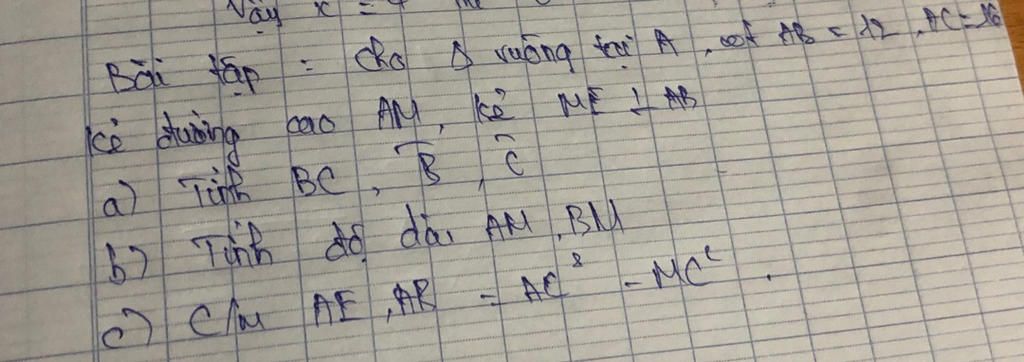 Vậy x =
Bài tập = Cho Δ vuông tại A, có AB = 12, AC = 16
Kẻ đường cao AM, kẻ ME ⊥ AB
a) Tính BC, B̂, Ĉ
b) Tính độ dài AM, BM
c) C/m AE, AB = AC² - MC².